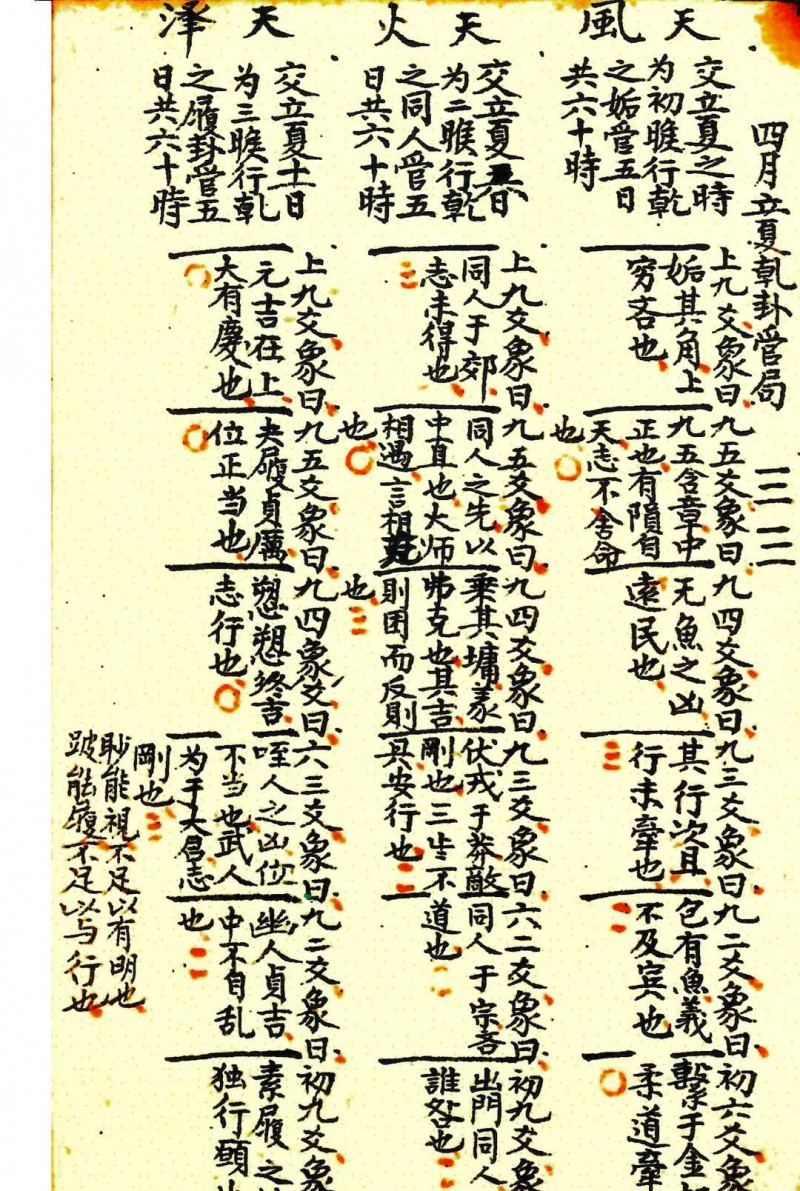 四月立夏乾卦管局
天風
交立夏之時
为初睺行乾
之姤管五日
共六十時
上九爻象曰
姤其角上
穷吝也
九五爻象曰
九五含章中
正也有隕自
天志不舍命
也
九四爻象曰
无魚之凶
遠民也
九三爻象曰
其行次且
行未牽也
九二爻象曰
包有魚義
不及宾也
初六爻象
繫于金
柔道牽
天火
交立夏五日
为二睺行乾
之同人管五
日共六十時
上九爻象曰
同人于郊
志未得也
九五爻象曰
同人之先以
中直也大师
相遇言相
也
九四爻象曰
乘其墉义
弗克也其吉
則困而反則
也
九三爻象曰
伏戎于莽敵
剛也三岁不
具安行也
六二爻象曰
同人于宗吝
道也
初九爻象
出門同人
誰咎也
天泽
交立夏十日
为三睺行乾
之履卦管五
日共六十時
上九爻象曰
元吉在上
大有慶也
九五爻象曰
夬履貞厲
位正当也
九四象爻曰
愬愬终吉
志行也
六三爻象曰
咥人之凶位
不当也武人
为于大君志
剛也
眇能視不足以有明也
跛能履不足以与行也
九二爻象曰
幽人貞吉
中不自乱
也
初九爻象
素履之
独行願